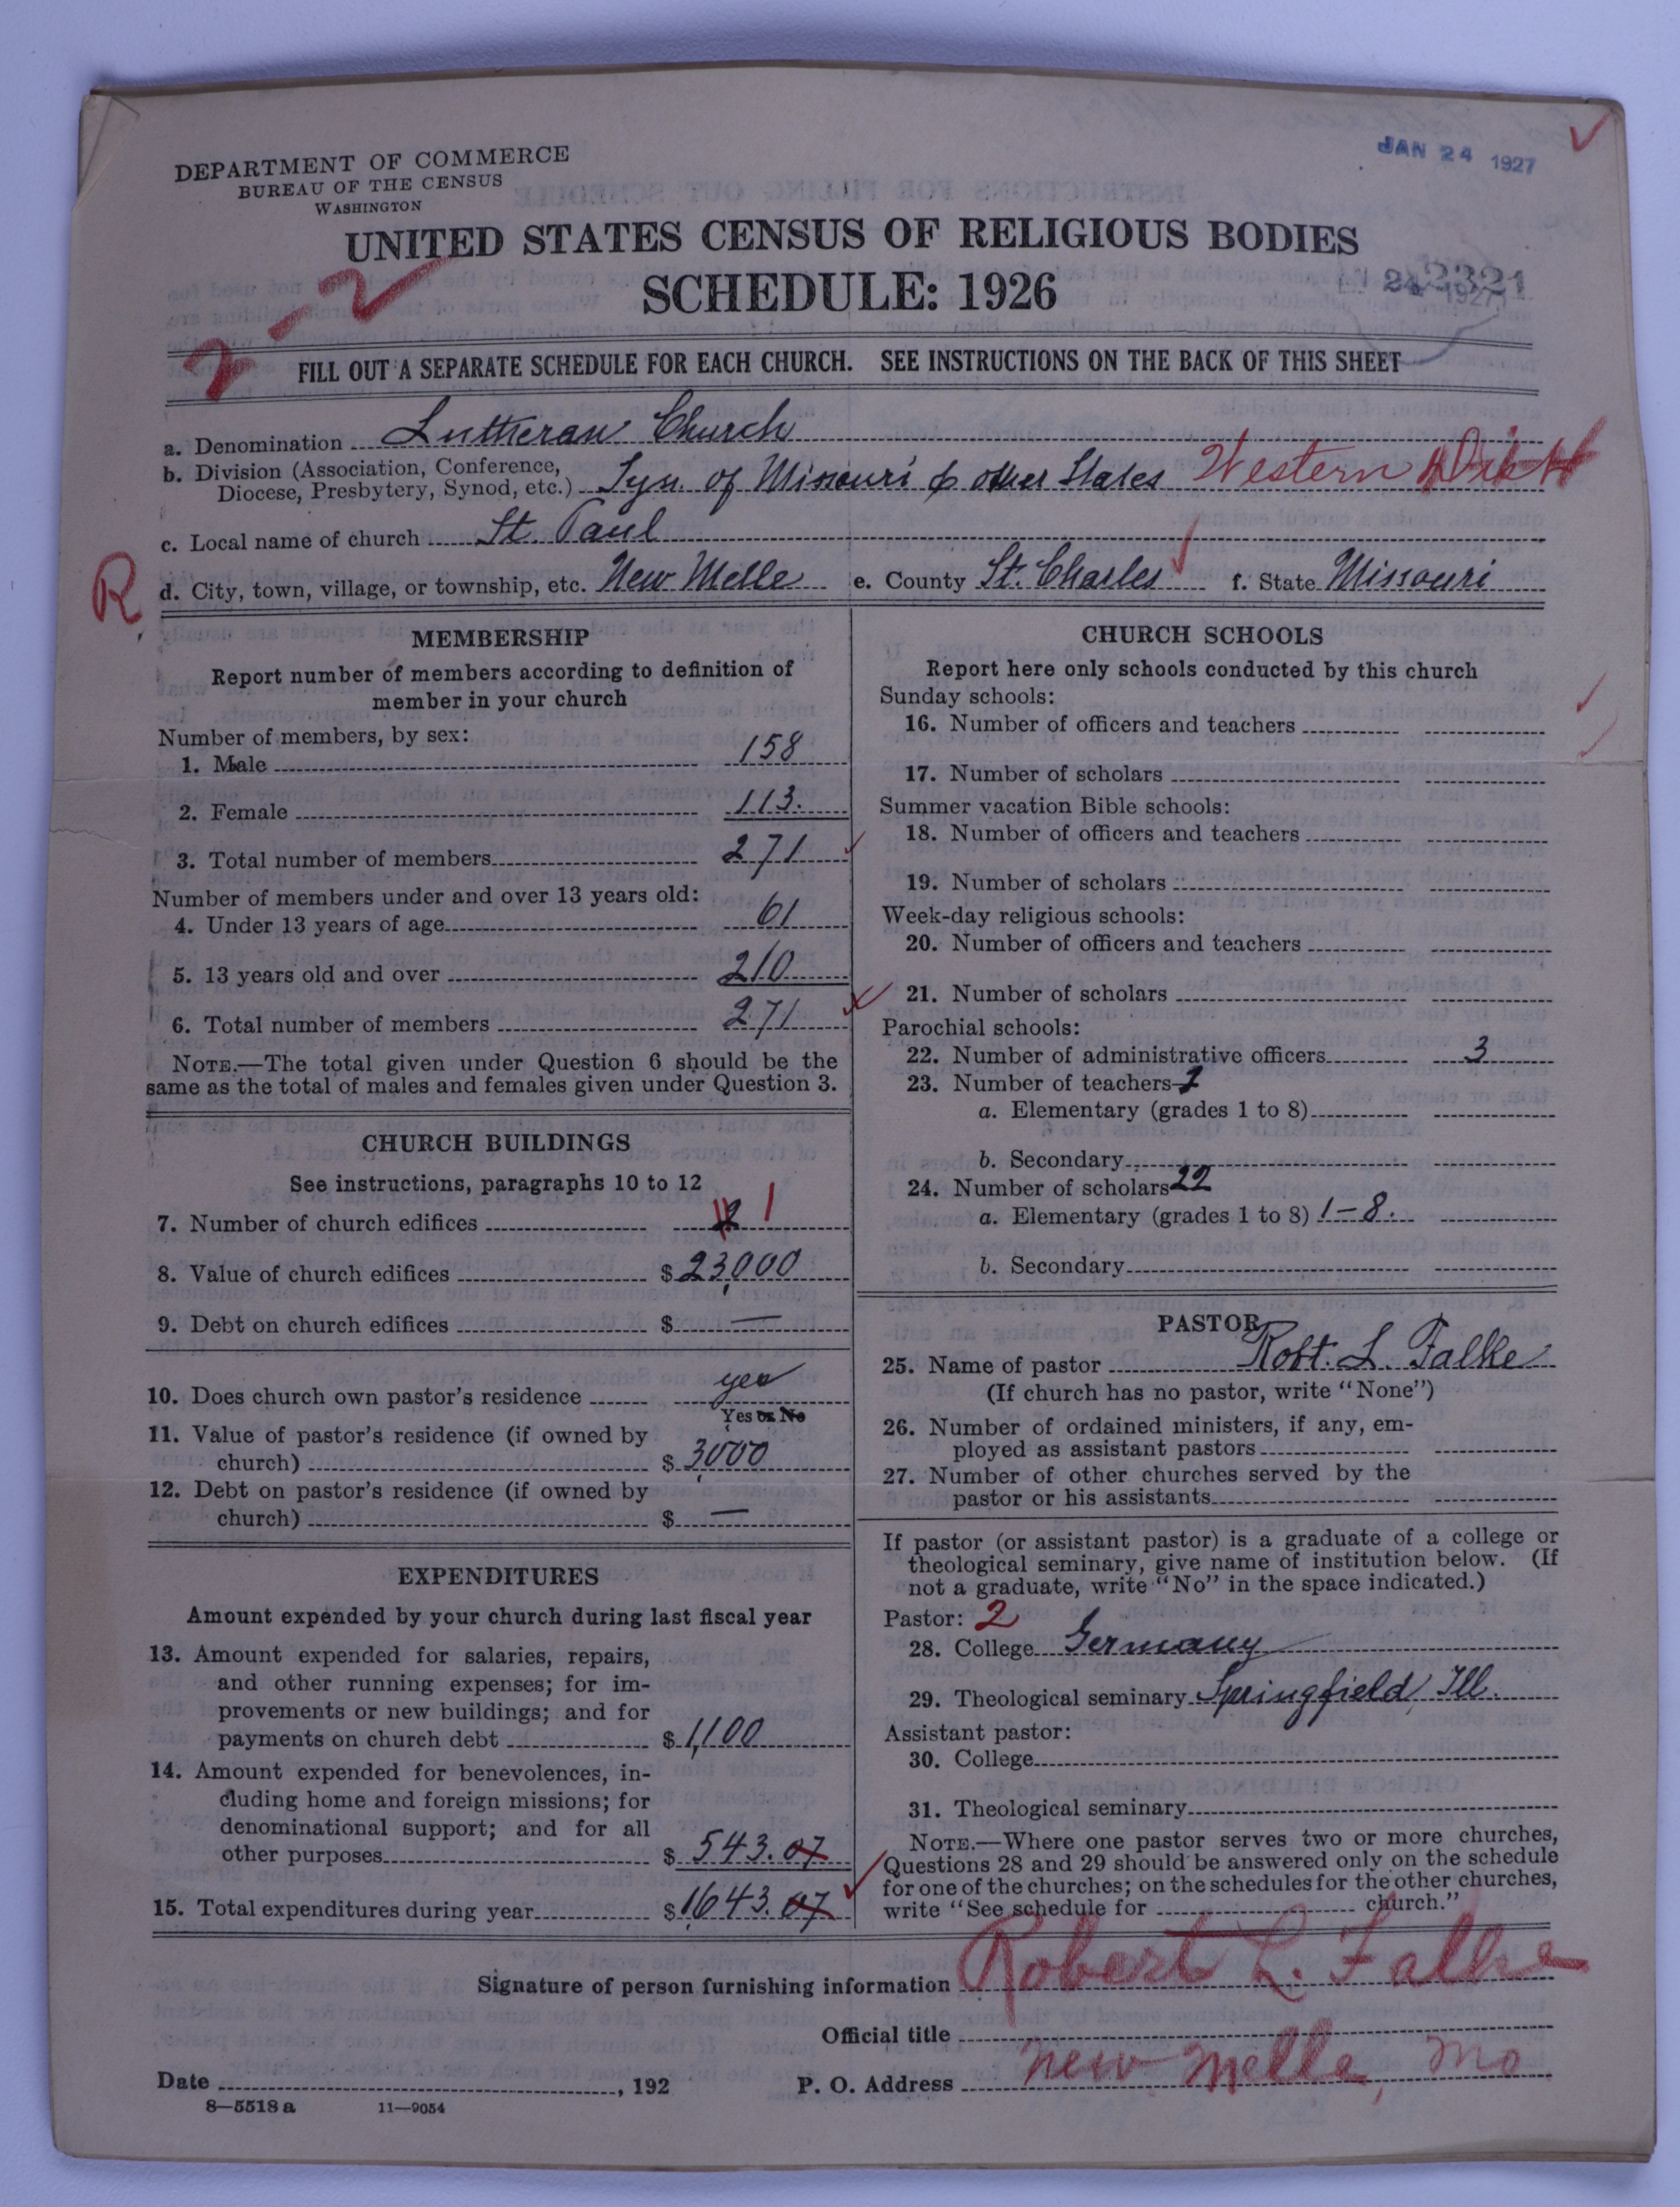 DEPARTMENT OF COMMERCE
BUREAU OF THE CENSUS
WASHINGTON
JAN 24 1927
UNITED STATES CENSUS OF RELIGIOUS BODIES
SCHEDULE: 1926
2-2
FILL OUT A SEPARATE SCHEDULE FOR EACH CHURCH. SEE INSTRUCTIONS ON THE BACK OF THIS SHEET
a. Denomination Lutheran Church
b. Division (Association, Conference,
Diocese, Presbytery, Synod, etc.) Syn. of Missouri & other States Western
c. Local name of church St. Paul
R
d. City, town, village, or township, etc. New Melle e. County St. Charles f. State Missouri
MEMBERSHIP
Report number of members according to definition of
member in your church
Number of members, by sex:
1. Male 158
2. Female 113.
3. Total number of members 271
Number of members under and over 13 years old:
4. Under 13 years of age 61
5. 13 years old and over 210
6. Total number of members 271
NOTE.—The total given under Question 6 should be the
same as the total of males and females given under Question 3.
CHURCH BUILDINGS
See instructions, paragraphs 10 to 12
7. Number of church edifices 2 1
8. Value of church edifices $ 23,000
9. Debt on church edifices $ —
10. Does church own pastor's residence yes
Yes or No
11. Value of pastor's residence (if owned by
church) $ 3,000
12. Debt on pastor's residence (if owned by
church) $ —
EXPENDITURES
Amount expended by your church during last fiscal year
13. Amount expended for salaries, repairs,
and other running expenses; for im-
provements or new buildings; and for
payments on church debt $ 1,100
14. Amount expended for benevolences, in-
cluding home and foreign missions; for
denominational support; and for all
other purposes $ 543.07
15. Total expenditures during year $ 1,643.07
CHURCH SCHOOLS
Report here only schools conducted by this church
Sunday schools:
16. Number of officers and teachers
17. Number of scholars
Summer vacation Bible schools:
18. Number of officers and teachers
19. Number of scholars
Week-day religious schools:
20. Number of officers and teachers
21. Number of scholars
Parochial schools:
22. Number of administrative officers 3
23. Number of teachers— 1
a. Elementary (grades 1 to 8)
b. Secondary
24. Number of scholars 22
a. Elementary (grades 1 to 8) 1-8.
b. Secondary
PASTOR
25. Name of pastor Robt. L. Falke
(If church has no pastor, write "None")
26. Number of ordained ministers, if any, em-
ployed as assistant pastors
27. Number of other churches served by the
pastor or his assistants
If pastor (or assistant pastor) is a graduate of a college or
theological seminary, give name of institution below. (If
not a graduate, write "No" in the space indicated.)
Pastor: 2
28. College Germany
29. Theological seminary Springfield, Ill.
Assistant pastor:
30. College
31. Theological seminary
NOTE.—Where one pastor serves two or more churches,
Questions 28 and 29 should be answered only on the schedule
for one of the churches; on the schedules for the other churches,
write "See schedule for church."
Signature of person furnishing information Robert L. Falke
Official title
Date , 192 P. O. Address New Melle, Mo.
8—5518 a 11—9054